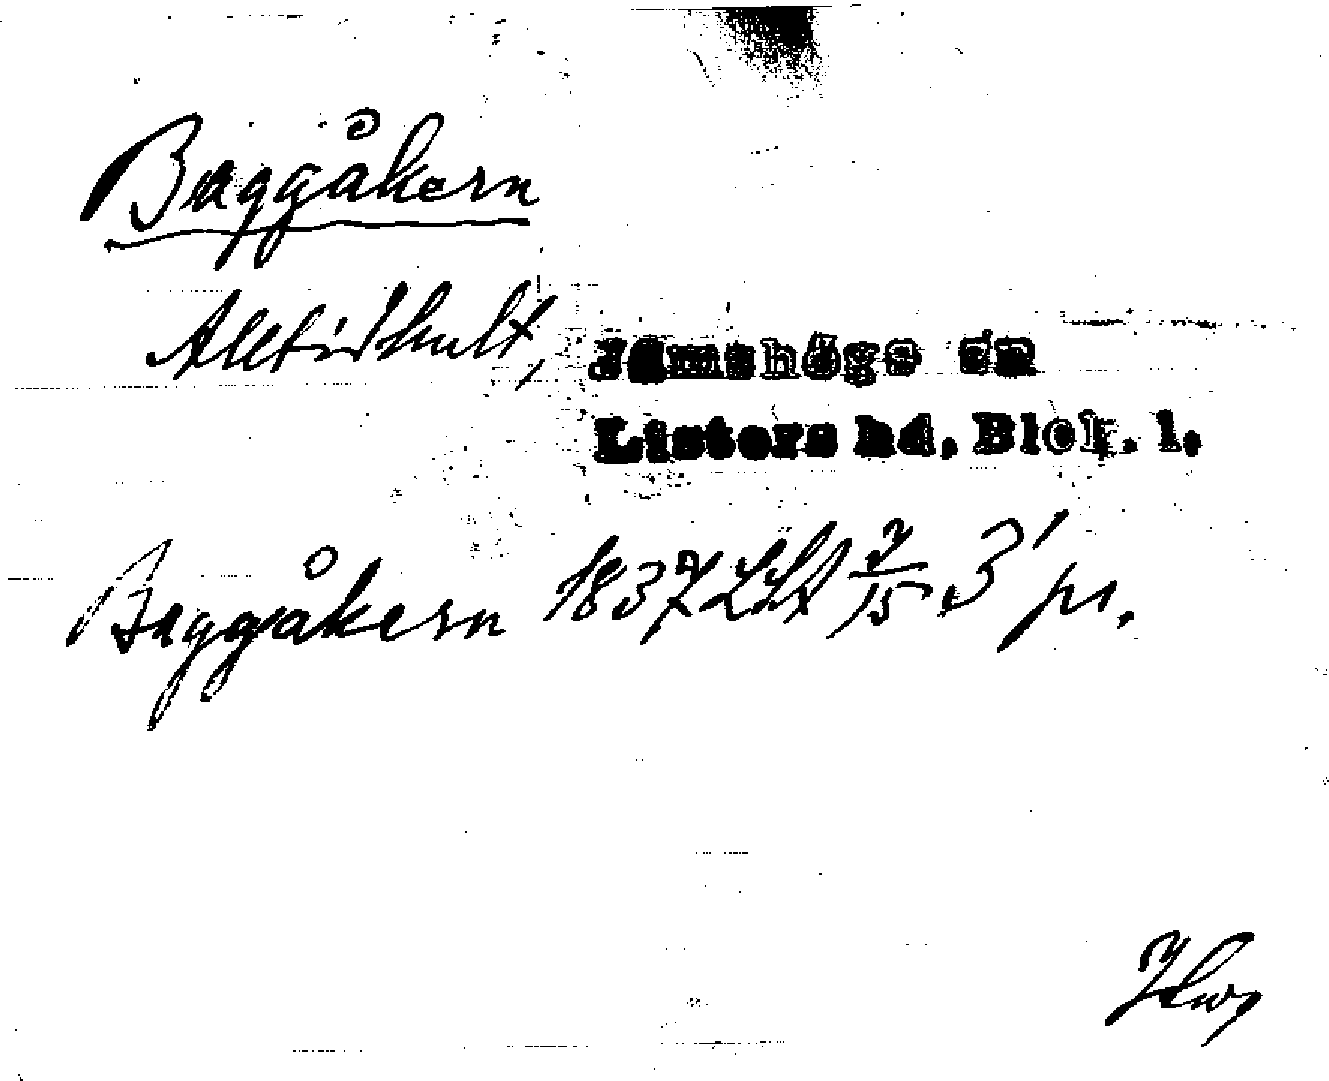 Baggåkern
Alltidhult, Jämshögs sn
Listers hd, Blek. l.
Baggåkern 1837 LSA 7/15 3' pr.